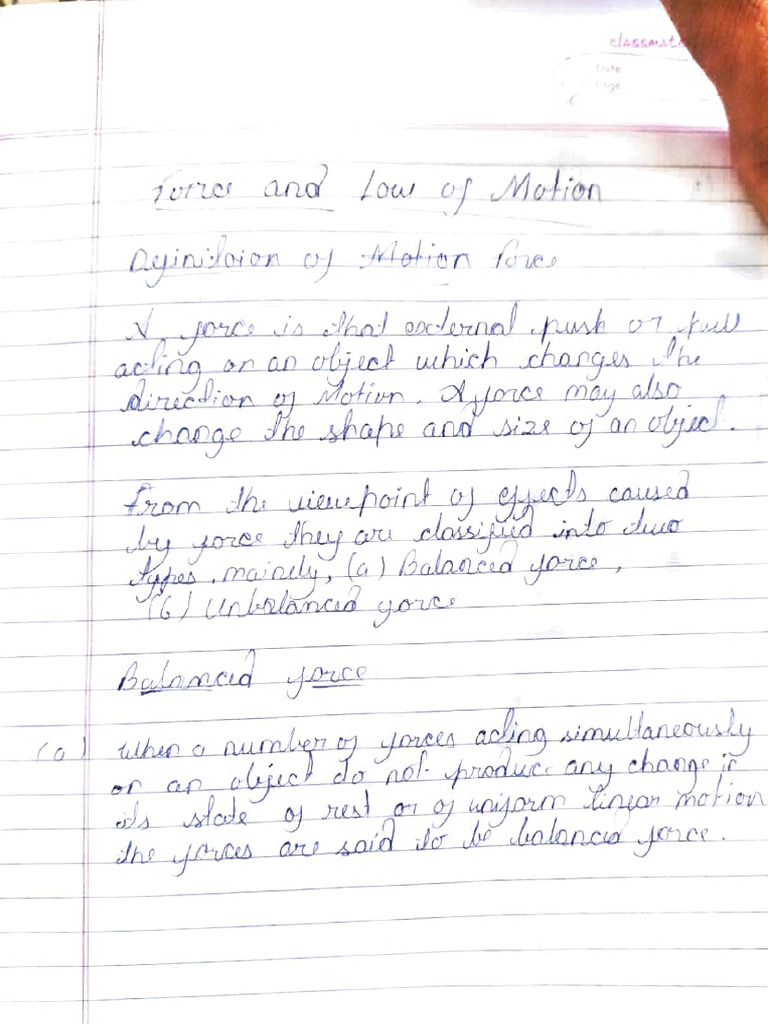 classmate
Date
Page
Force and Low of Motion
Definitoion of Motion Force
A force is that external push or pull
acting on an object which changes the
direction of Motion. A force may also
change the shape and size of an object.
From the viewpoint of effects caused
by force they are classified into two
types, mainely, (a) Balanced force,
(b) Unbalanced force
Balanced force
(a) When a number of forces acting simultaneously
on an object do not produce any change in
its state of rest or of uniform linear motion
the forces are said to be balanced force.